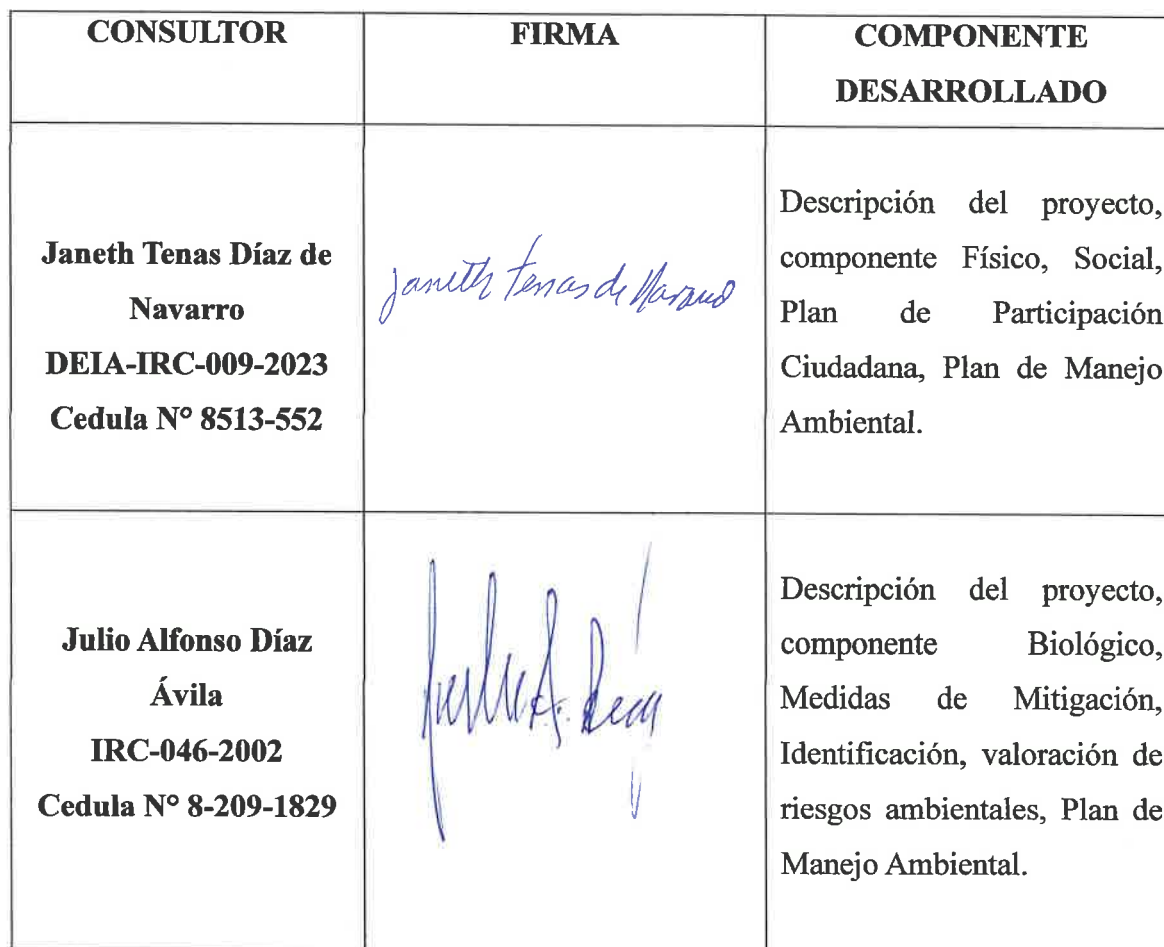 CONSULTOR
FIRMA
COMPONENTE
DESARROLLADO
Janeth Tenas Díaz de
Navarro
DEIA-IRC-009-2023
Cedula Nº 8513-552
Janeth Tenas de Navarro
Descripción del proyecto,
componente Físico, Social,
Plan de Participación
Ciudadana, Plan de Manejo
Ambiental.
Julio Alfonso Díaz
Ávila
IRC-046-2002
Cedula Nº 8-209-1829
Julio A. Díaz
Descripción del proyecto,
componente Biológico,
Medidas de Mitigación,
Identificación, valoración de
riesgos ambientales, Plan de
Manejo Ambiental.